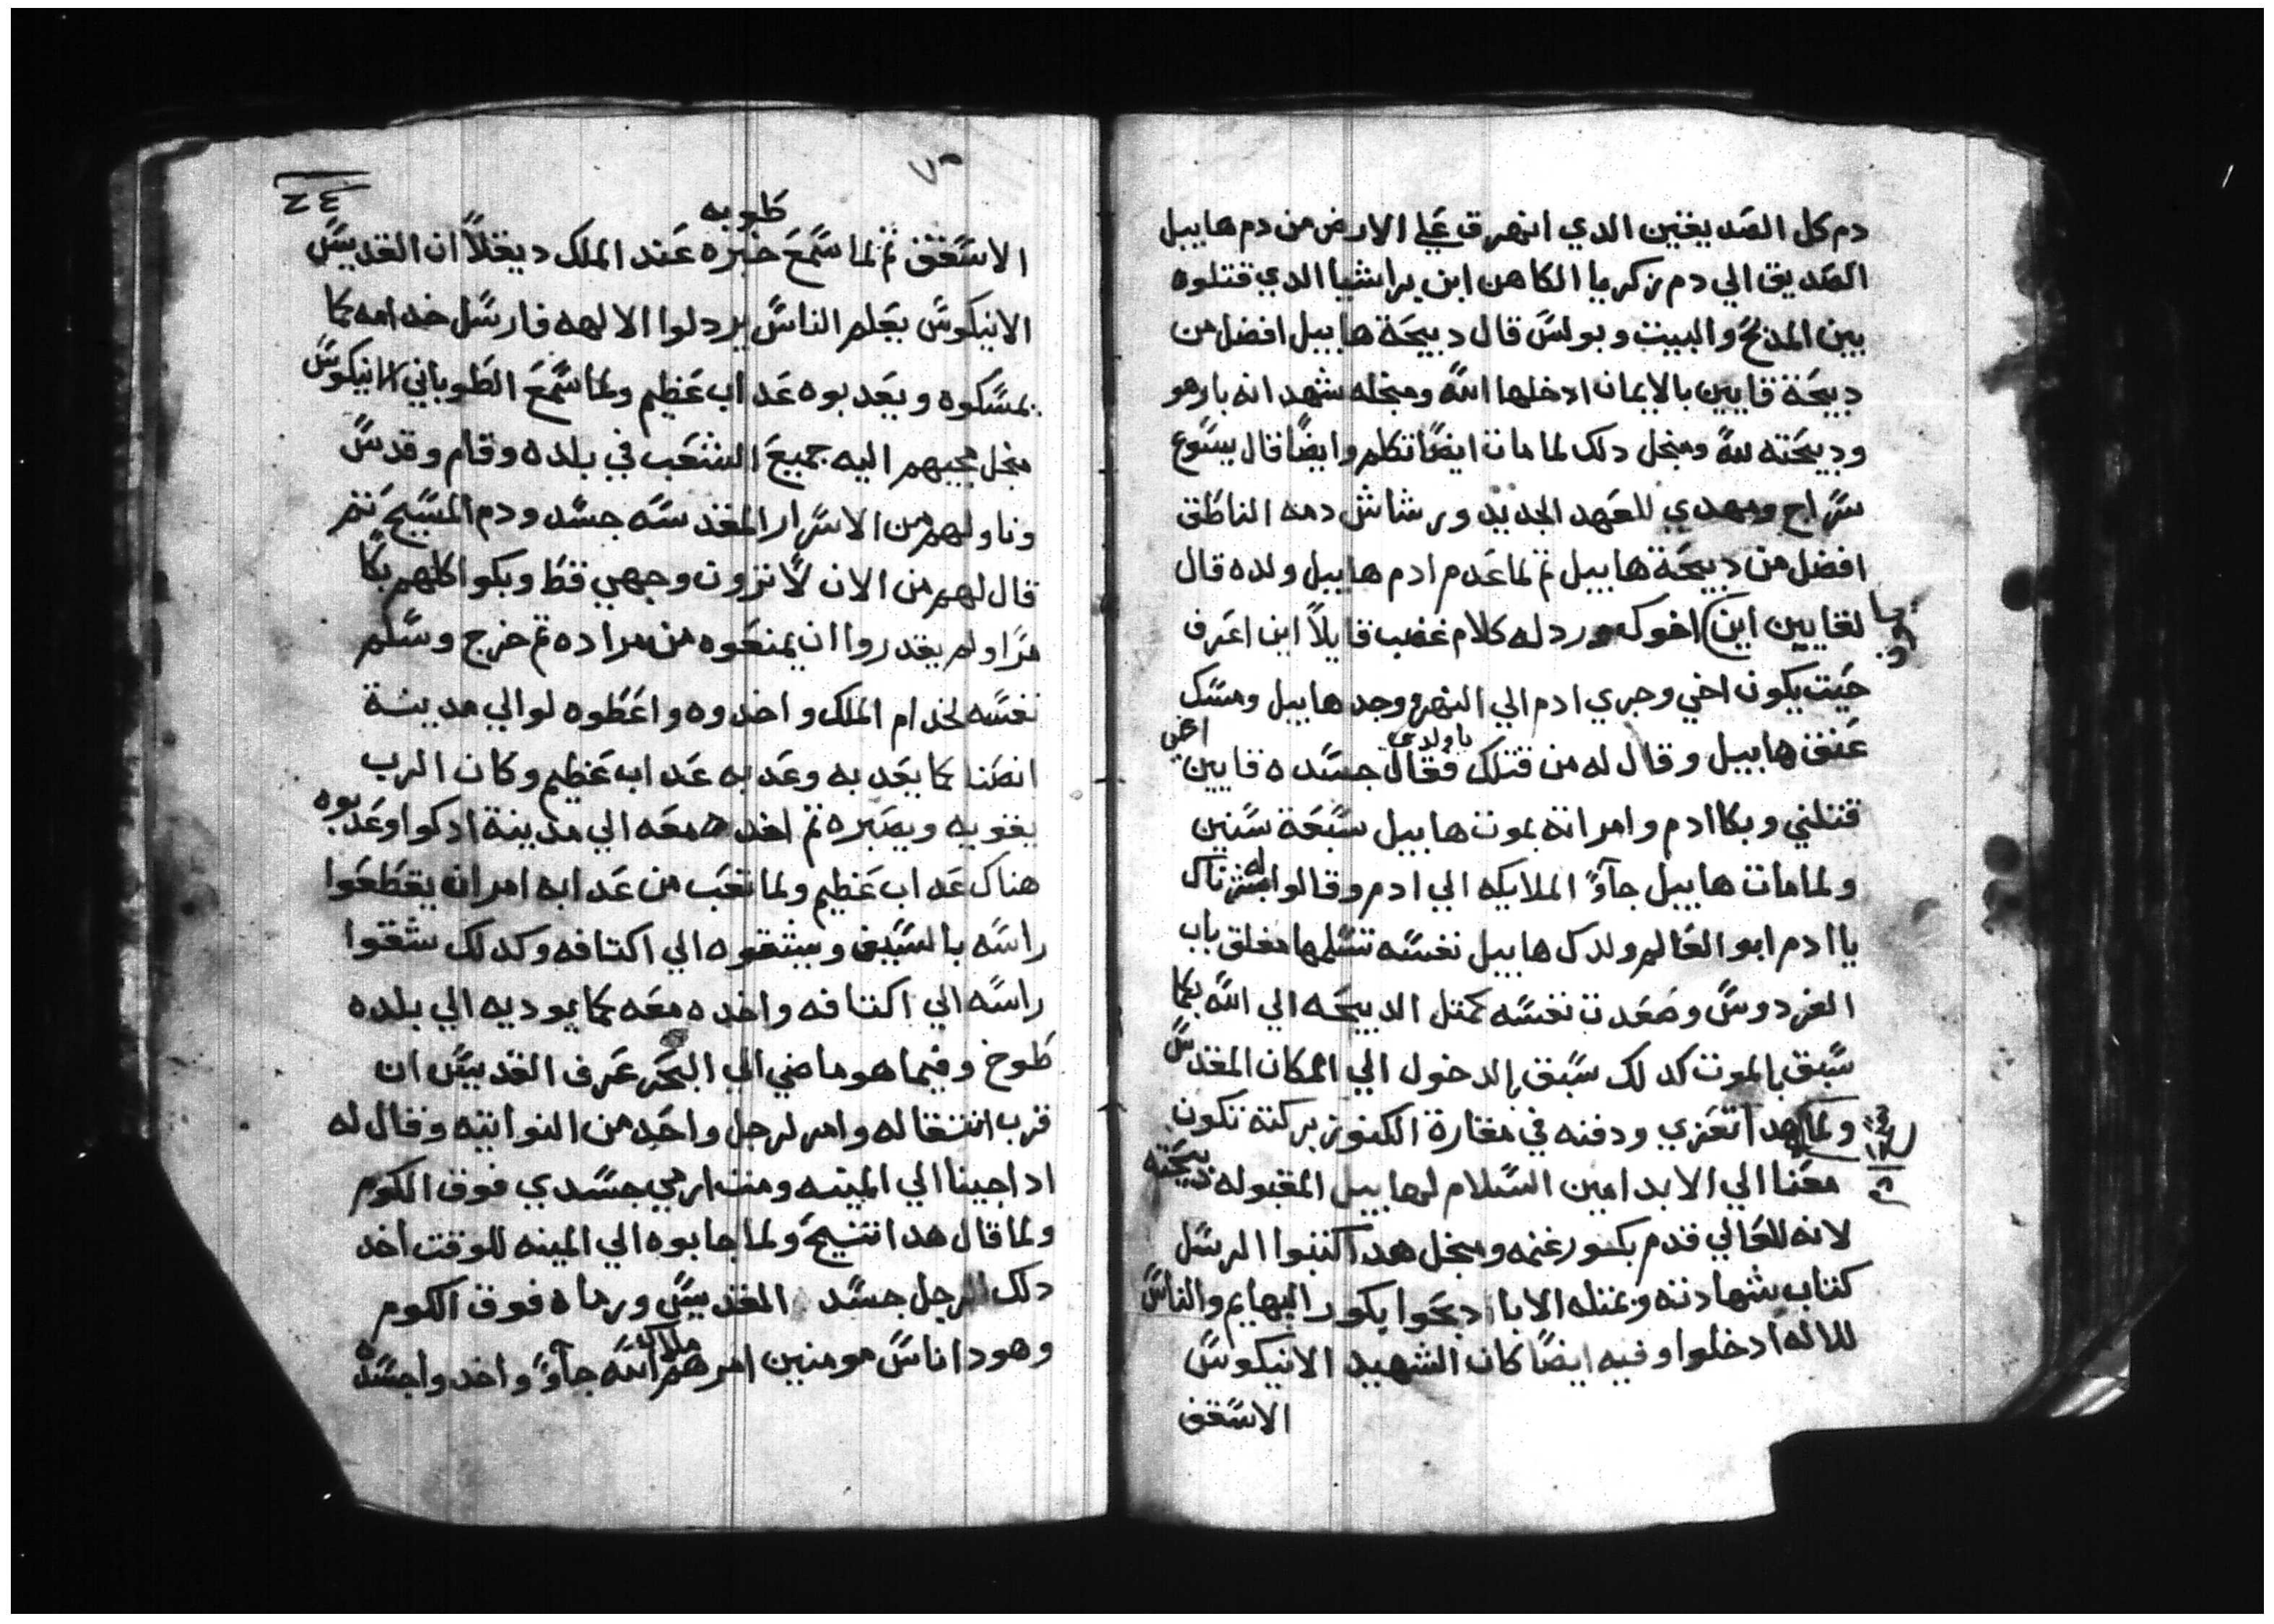 دم كل الصديقين الدي انهرق علي الارض من دم هابيل
الصديق الي دم زكريا الكاهن ابن براشيا الدي قتلوه
بين المدبح والبيت وبولس قال دبيحة هابيل افضل من
دبيحة قايين بالايمان ادخلها الله ومنجله شهد انه بار هو
ودبيحته لله ومنجل دلك لما مات ايضًا تكلم وايضًا قال يسوع
سراج ومهدي للعهد الجديد ورشاش دمه الناطق
افضل من دبيحة هابيل تم لما عدم ادم هابيل ولده قال
لقايين اين اخوك ورد له كلام غضب قايلاً اين اعرف
حيت يكون اخي وجري ادم الي النهر وجد هابيل ومسك
عنق هابيل وقال له من قتلك فقال جسده يا ولدي قايين اخي
قتلني وبكا ادم وامراته بموت هابيل سبعة سنين
ولما مات هابيل جآوً الملايكه الي ادم وقالوا له
يا ادم ابو العالم ولدك هابيل نفسه تسلمها مغلق باب
الفردوس وصعدت نفسه كمتل الدبيحه الي الله بكما
سبق بالموت كدلك سبق بالدخول الي المكان المقدس
ولما هدا تعزي ودفنه في مغارة الكنوز بركته تكون
معنا الي الابد امين السلام لهابيل المقبوله دبيحته
لانه للعالي قدم بكور غنمه ومنجل هدا اكتبوا الرسل
كتاب شهادته وبمتله الابا ادبحوا بكور البهايم والناس
للاله ادخلوا وفيه ايضًا كان الشهيد الانيكوس
الاسقف
٢٤
طوبه
الاسقف تم لما سمع خبره عند الملك ديقلاً ان القديس
الانيكوس يعلم الناس يردلوا الالهه فارسل خدامه كما
يمسكوه ويعدبوه عداب عظيم ولما سمع الطوباني الانيكوس
منجل مجيهم اليه جميع الشعب في بلده وقام وقدس
وناولهم من الاسرار المقدسه جسد ودم المسيح تم
قال لهم من الان لا تزون وجهي قط وبكوا كلهم بكًا
مرًا ولم يقدروا ان يمنعوه من مراده تم خرج وسلم
نفسه لخدام الملك واخدوه واعطوه لوالي مدينة
انصنا كما يعدبه وعدبه عداب عظيم وكان الرب
يقويه ويصبره تم اخده معه الي مدينة ادكوا وعدبوه
هناك عداب عظيم ولما تعب من عدابه امر ان يقطعوا
راسه بالسيف ويشقوه الي اكتافه وكدلك شقوا
راسه الي اكتافه واخده معه كما يوديه الي بلده
طوخ وفيما هو ماضي الي البحر عرف القديس ان
قرب انتقاله وامر لرجل واحد من النواتيه وقال له
ادا جينا الي المينه ومت ارمي جسدي فوق الكوم
ولما قال هدا اتنيح ولما جابوه الي المينه للوقت اخد
دلك الرجل جسد القديس ورماه فوق الكوم
وهودا ناس مومنين امرهم ملاك الله جآوً واخدوا جسده